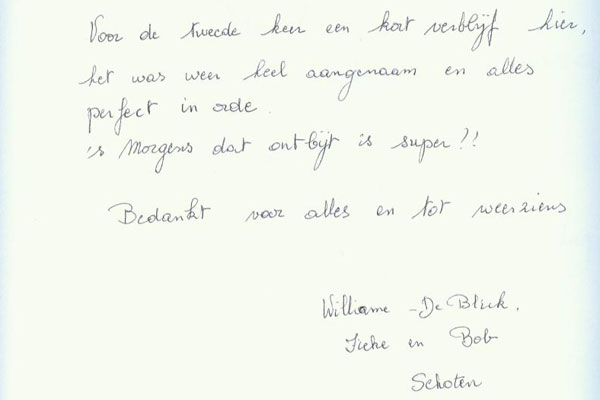 Voor de tweede keer een kort verblijf hier,
het was weer heel aangenaam en alles
perfect in orde.
's Morgens dat ontbijt is super!!
Bedankt voor alles en tot weerziens
Williame - De Blick.
en Bob
Schoten